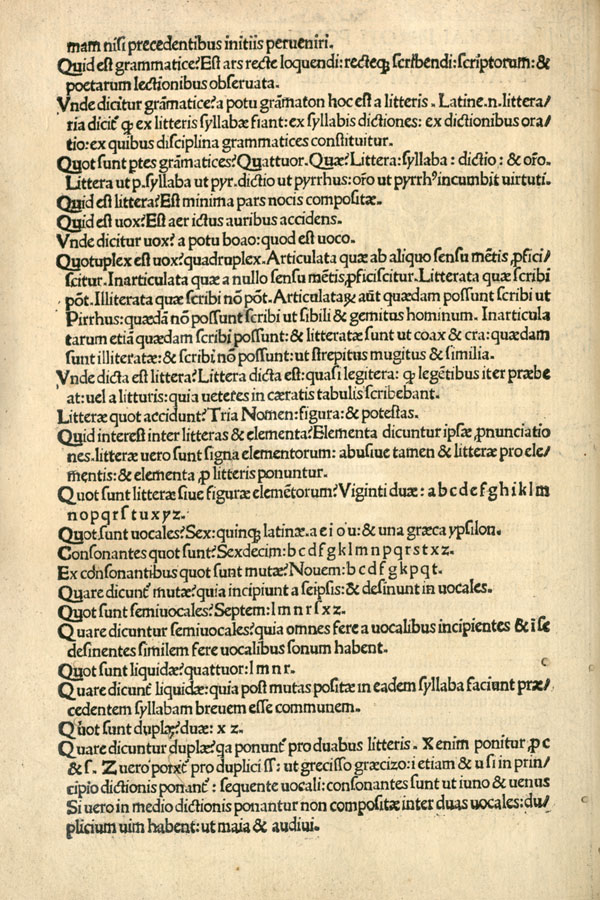 mam nisi precedentibus initiis perueniri.
Quid est grammatice? Est ars recte loquendi: recteqꝫ scribendi: scriptorum: &
poetarum lectionibus obseruata.
Vnde dicitur grãmatice? a potu grãmaton hoc est a litteris. Latine .n. littera/
ria dicit᷑ ꝙ ex litteris syllabæ fiant: ex syllabis dictiones: ex dictionibus ora/
tio: ex quibus disciplina grammatices constituitur.
Quot sunt ptes grãmatices? Quattuor. Quæ? Littera: syllaba: dictio: & oro̅.
Littera ut p. syllaba ut pyr. dictio ut pyrrhus: oro̅ ut pyrrhꝰ incumbit uirtuti.
Quid est littera? Est minima pars nocis compositæ.
Quid est uox? Est aer ictus auribus accidens.
Vnde dicitur uox? a potu boao: quod est uoco.
Quotuplex est uox? quadruplex. Articulata quæ ab aliquo sensu mẽtis ꝓfici/
scitur. Inarticulata quæ a nullo sensu mẽtis ꝓficiscitur. Litterata quæ scribi
põt. Illiterata quæ scribi nõ põt. Articulataꝝ aũt quædam possunt scribi ut
Pirrhus: quædã nõ possunt scribi ut sibili & gemitus hominum. Inarticula
tarum etiã quædam scribi possunt: & litteratæ sunt ut coax & cra: quædam
sunt illiteratæ: & scribi nõ possunt: ut strepitus mugitus & similia.
Vnde dicta est littera? Littera dicta est: quasi legitera: ꝙ legẽtibus iter præbe
at: uel a lituris: quia ueteres in cæratis tabulis scribebant.
Litteræ quot accidunt? Tria Nomen: figura: & potestas.
Quid interest inter litteras & elementa? Elementa dicuntur ipsæ ꝓnunciatio
nes. litteræ uero sunt signa elementorum: abusiue tamen & litteræ pro ele/
mẽtis: & elementa ꝓ litteris ponuntur.
Quot sunt litteræ siue figuræ elemẽtorum? Viginti duæ: a b c d e f g h i k l m
n o p q r s t u x y z.
Quot sunt uocales? Sex: quinqꝫ latinæ. a e i o u: & una græca ypsilon.
Consonantes quot sunt? Sexdecim: b c d f g k l m n p q r s t x z.
Ex consonantibus quot sunt mutæ? Nouem: b c d f g k p q t.
Quare dicunt᷑ mutæ? quia incipiunt a seipsis: & desinunt in uocales.
Quot sunt semiuocales? Septem: l m n r s x z.
Quare dicuntur semiuocales? quia omnes fere a uocalibus incipientes & ĩ se
desinentes similem fere uocalibus sonum habent.
Quot sunt liquidæ? quattuor: l m n r.
Quare dicunt᷑ liquidæ: quia post mutas positæ in eadem syllaba faciunt præ/
cedentem syllabam breuem esse communem.
Quot sunt duplæ? duæ: x z.
Quare dicuntur duplæ? qa ponunt᷑ pro duabus litteris. X enim ponitur ꝓ c
& s. Z uero ponit᷑ pro duplici ss: ut grecisso græcizo: i etiam & u si in prin/
cipio dictionis ponant᷑: sequente uocali: consonantes sunt ut iuno & uenus
Si uero in medio dictionis ponantur non compositæ inter duas uocales: du/
plicium uim habent: ut maia & audiui.